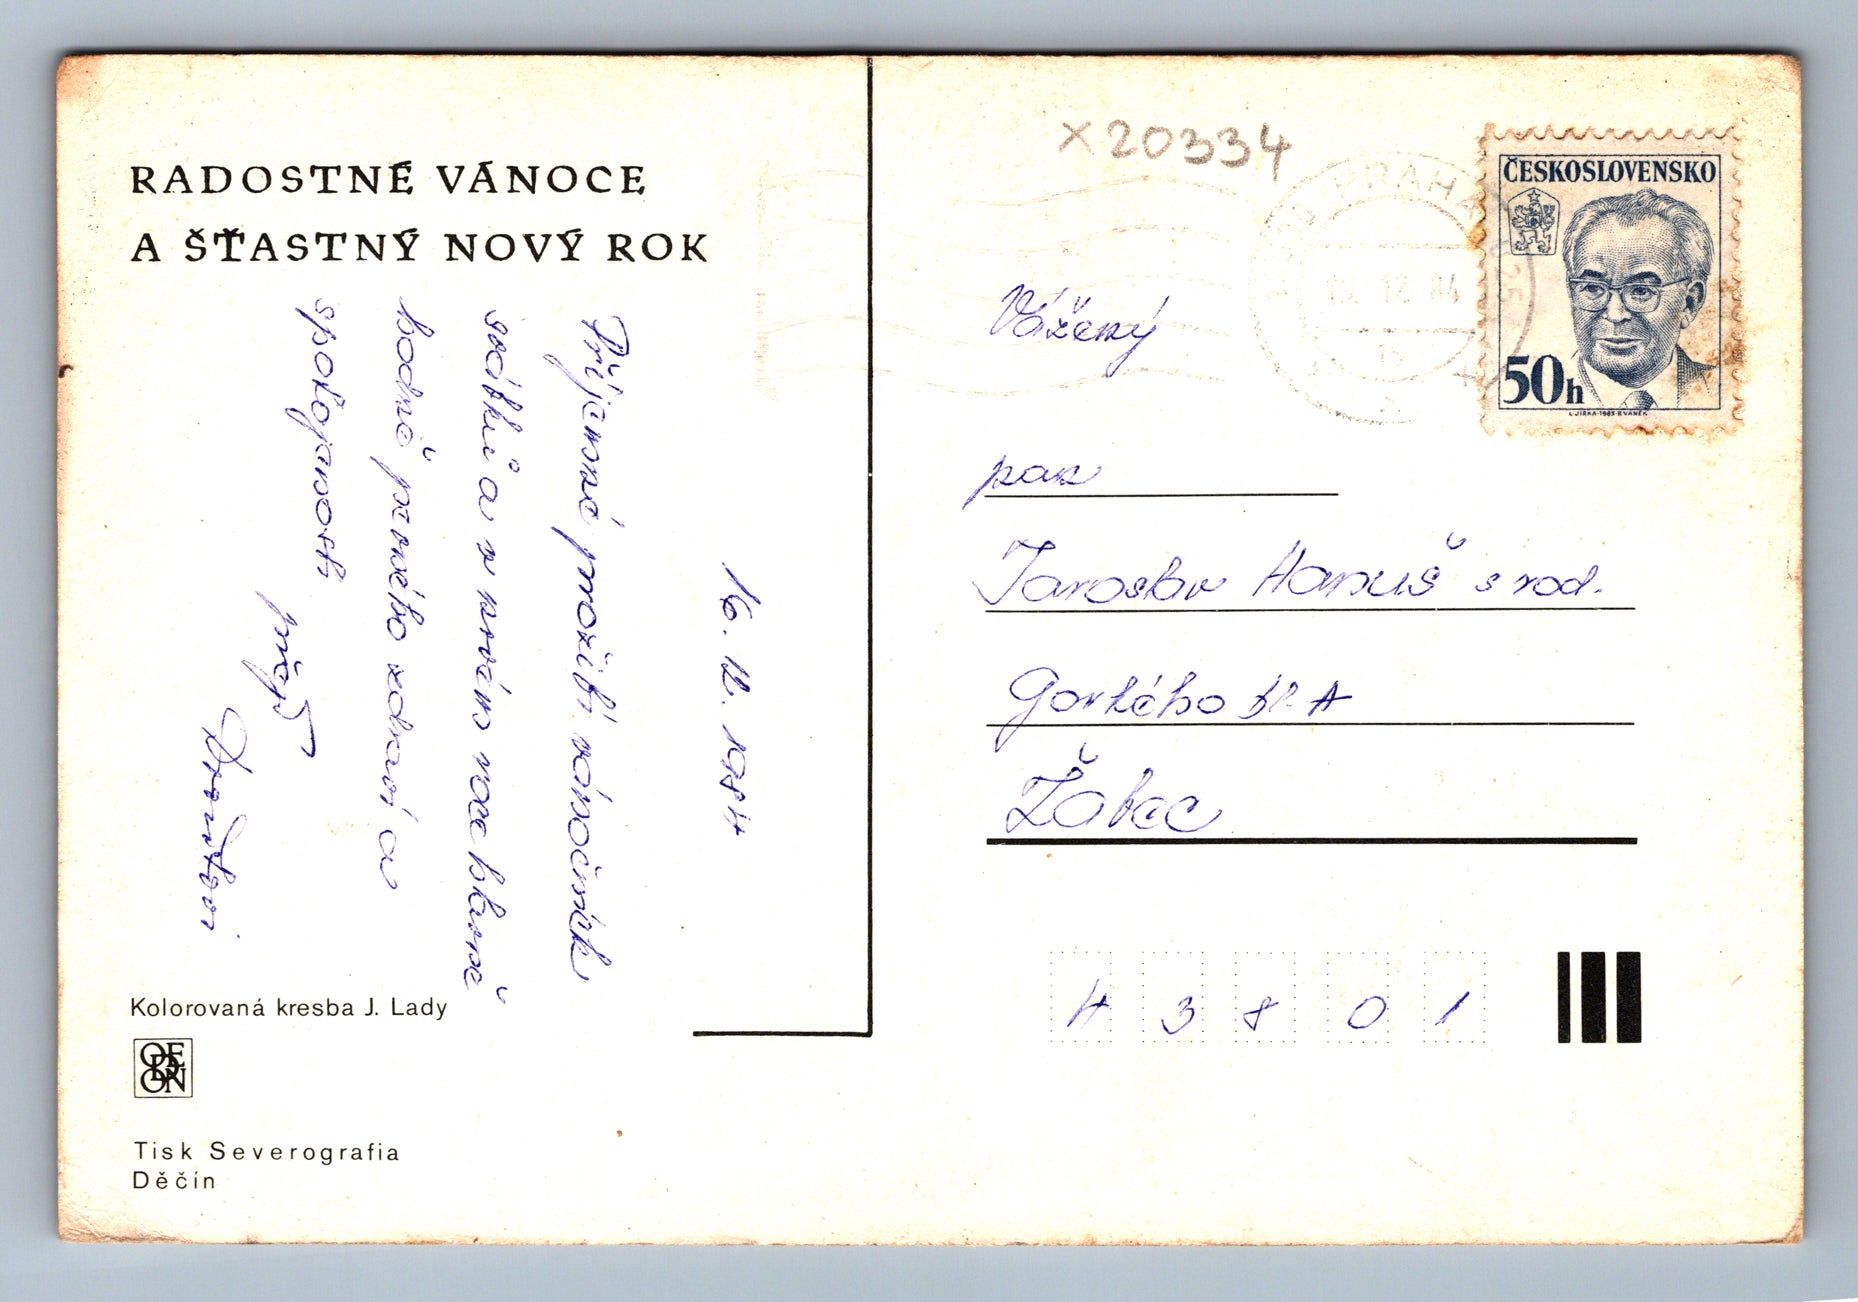 RADOSTNÉ VÁNOCE
A ŠŤASTNÝ NOVÝ ROK
16. 12. 1984
Příjemné prožití vánočních
svátků a v novém roce hlavně
hodně pevného zdraví a
spokojenosti
přejí
Kolorovaná kresba J. Lady
ODEON
Tisk Severografia
Děčín
x20334
PRAHA
12 84
ČESKOSLOVENSKO
50h
L.JIRKA-1983-B.VANĚK
Vážený
pan
Jaroslav Hanuš s rod.
Gorkého bl. A
Žatec
43801